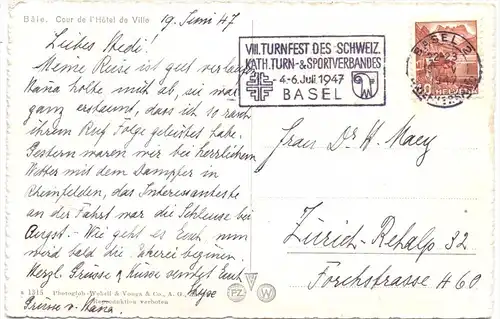 Bâle. Cour de l'Hôtel de Ville
19. Juni 47
Liebes Hedi!
Meine Reise ist gut verlaufen
holte mich ab, sie war
ganz erstaunt, dass ich so rasch
ihrem Ruf Folge geleistet habe.
Gestern waren wir bei herrlichem
Wetter mit dem Dampfer in
Rheinfelden, das Interessanteste
an der Fahrt war die Schleuse bei
Augst. – Wie geht es Euch, nun
wird bald die beginnen
Herzl. Grüsse & Küsse sendet Euch
Grüsse v.
VIII. TURNFEST DES SCHWEIZ.
KATH. TURN- & SPORTVERBANDES
4.-6. Juli 1947
BASEL
BASEL 2
HELVETIA
Frau Dr H.
Zürich-Rehalp 32
Forchstrasse 460
1315 Photoglob-Wehrli & Vouga & Co., A. G.
Reproduktion verboten
PZ W